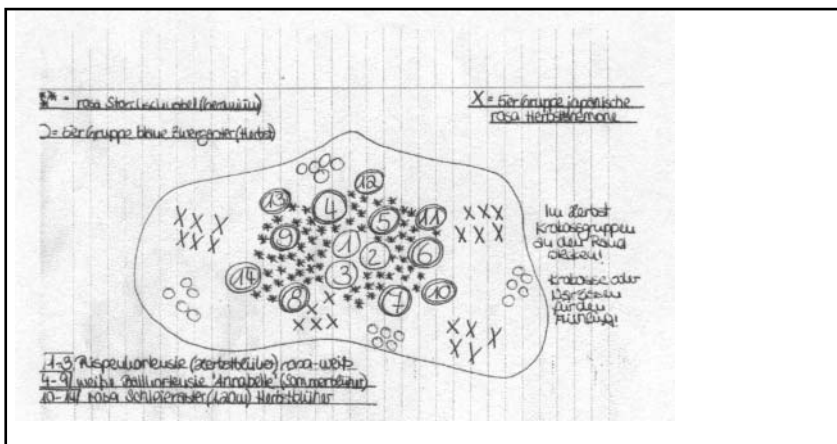 = rosa Storchschnabel (Geranium)
X = 5er Gruppe japanische
rosa Herbstanemone
= 5er Gruppe blaue Zwergaster (Herbst)
12
13
4
5
11
9
1
2
6
3
14
8
7
10
Im Herbst
Krokusgruppen
an den Rand
Krokusse oder
Narzissen
für den
Frühling!
1-3 Rispenhortensie (Herbstblüher) rosa-weiß
4-9 weiße Ballhortensie "Annabelle" (Sommerblüher)
10-14 rosa Schleieraster (1,20m) Herbstblüher